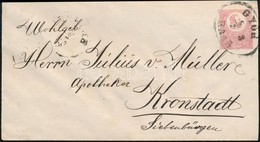 Wohlgeb
Herrn Julius v. Müller
Apotheker
Kronstadt
Siebenbürgen